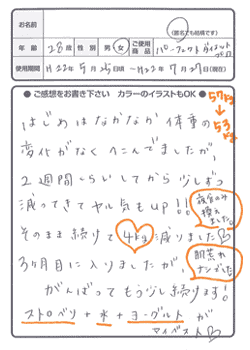 お名前
(匿名でも結構です)
年齢 28歳 性別 男・女 ご使用商品 パーフェクトダイエット
使用期間 H22年5月25日頃〜H22年7月27日(現在)
●ご感想をお書き下さい カラーのイラストもOK●
57kg
↓
53kg
はじめはなかなか体重の
変化がなくへこんでましたが、
2週間くらいしてから少しずつ
減ってきてヤル気もUP!!
そのまま続けて4kg減りました
3ヶ月目に入りましたが、
がんばってもう少し続けます!
ストロベリ+水+ヨーグルトが
マイベスト